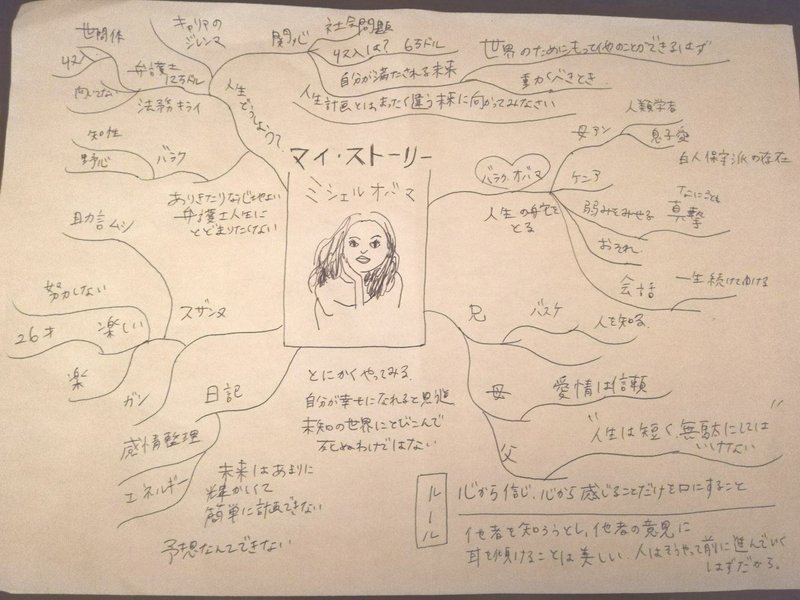 マイ・ストーリー
ミシェルオバマ
人生
どうしよう?
関心
社会問題
収入は? 6万ドル
世界のためにもっと他のことができるはず
自分が満たされる未来
動くべきとき
人生計画とはまったく違う未来に向かってみなさい
キャリアの
ジレンマ
弁護士
12万ドル
世間体
収入
向いてない
法務キライ
バラク
知性
野心
ありきたりな
弁護士人生に
とどまりたくない
バラク・オバマ
人生の舵を
とる
母アン
人類学者
息子愛
白人保守派の存在
ケニア
弱みをみせる
なにごとも
真摯
おそれ
会話
一生続けてゆける
兄
バスケ
人を知る
母
愛情は信頼
父
"人生は短く、無駄にしては
いけない"
スザンヌ
助言ムシ
努力しない
楽しい
26才
楽
ガン
日記
感情整理
エネルギー
未来はあまりに
輝かしくて
簡単に計画できない
予想なんてできない
とにかくやってみる
自分が幸せになれると思う道
未知の世界にとびこんで
死ぬわけではない
ルール
心から信じ、心から感じることだけを口にすること
他者を知ろうとし、他者の意見に
耳を傾けることは美しい。人はそうやって前に進んでいく
はずだから。